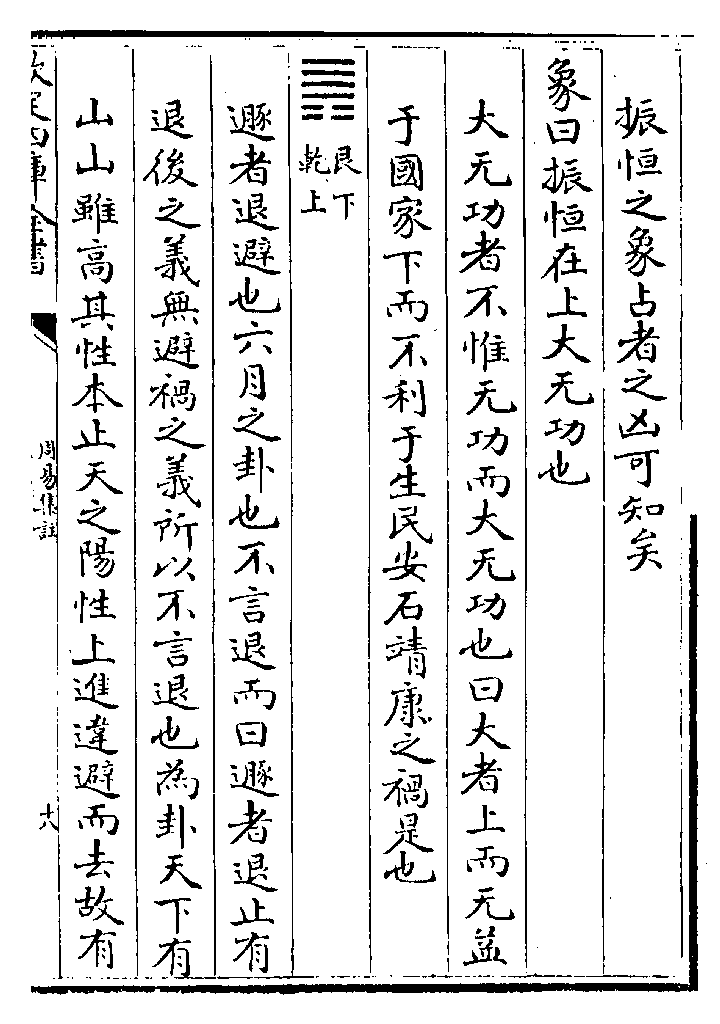 振恒之象占者之凶可知矣
象曰振恒在上大无功也
大无功者不惟无功而大无功也曰大者上而无益
于國家下而不利于生民安石靖康之禍是也
䷠艮下乾上
遯者退避也六月之卦也不言退而曰遯者退止有
退後之義無避禍之義所以不言退也為卦天下有
山山雖高其性本止天之陽性上進違避而去故有
欽定四庫全書
周易集註
十八